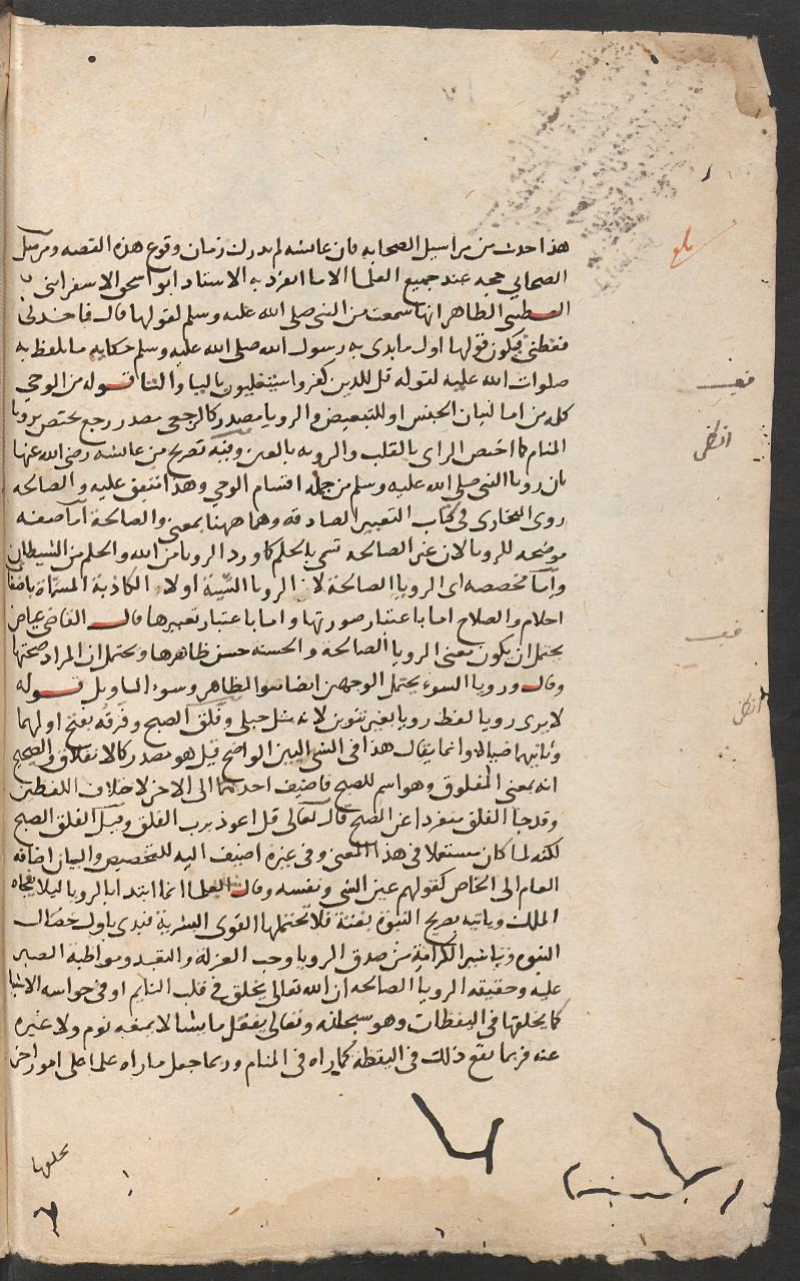 هذا حديث من مراسيل الصحابه فان عائشه لم تدرك زمان وقوع هذه القصه ومرسل
الصحابي حجه عند جميع العلما الا ما انفرد به الاستاد ابو اسحق الاسفرايني
الطيبي الظاهر انها سمعت من النبي صلى الله عليه وسلم لقولها قال فاخذني
فغطني فيكون قولها اول ما بدي به رسول الله صلى الله عليه وسلم حكايه ما تلفظ به
صلوات الله عليه لقوله قل للذين كفروا ستغلبون باليا والتا قوله من الوحي
كله من اما لبيان الجنس او للتبعيض والرويا مصدر كالرجعى مصدر رجع يختص برويا
المنام كما اختص الراي بالقلب والرويه بالعين وفيه تصريح من عائشه رضي الله عنها
بان رويا النبي صلى الله عليه وسلم من جمله اقسام الوحي وهذا متفق عليه والصالحه
روى البخاري في كتاب التعبير الصادقه وهما ههنا بمعنى والصالحة اما صفه
موضحه للرويا لان غير الصالحه تسمى بالحلم كما ورد الرويا من الله والحلم من الشيطان
واما مخصصه اى الرويا الصالحة لا الرويا السيئة اولا الكاذبة المسماة باضغاث
احلام والصلاح اما باعتبار صورتها واما باعتبار تعبيرها قال القاضي عياض
يحتمل ان يكون معنى الرويا الصالحة والحسنه حسن ظاهرها ويحتمل ان المراد صحتها
وقال ورويا السوء يحتمل الوجهين ايضا سوء الظاهر وسوء التاويل قوله
لا يرى رويا لفظ رويا بغير تنوين لانه مثل حبلى وفلق الصبح وفرقه بفتح اولهما
وثانيهما ضياؤه وانما يقال هذا في الشي البين الواضح قيل هو مصدر كالانفلاق والصحيح
انه بمعنى المفلوق وهو اسم للصبح فاضيف احدهما الى الاخر لاختلاف اللفظين
وقد جا الفلق منفردا عن الصبح قال تعالى قل اعوذ برب الفلق وقيل الفلق الصبح
لكنه لما كان مستعملا في هذا المعنى وفي غيره اضيف اليه للتخصيص والبيان اضافه
العام الى الخاص كقولهم عين الشي ونفسه وقال العلما انما ابتدا بالرويا ليلا يفجاه
الملك وياتيه بصريح النبوة بغتة فلا تحتملها القوى البشرية فبدي باول خصال
النبوه وتباشير الكرامة من صدق الرويا وحب العزلة والتعبد ومواظبة الصبر
عليه وحقيقه الرويا الصالحه ان الله تعالى يخلق في قلب النايم او في حواسه الاشيا
كما يخلقها في اليقظات وهو سبحانه وتعالى يفعل ما يشا لا يمنعه نوم ولا غيره
عنه فربما يقع ذلك في اليقظه كما يراه في المنام وربما جعل ما راه علما على امور اخر
يخلقها
بلغ